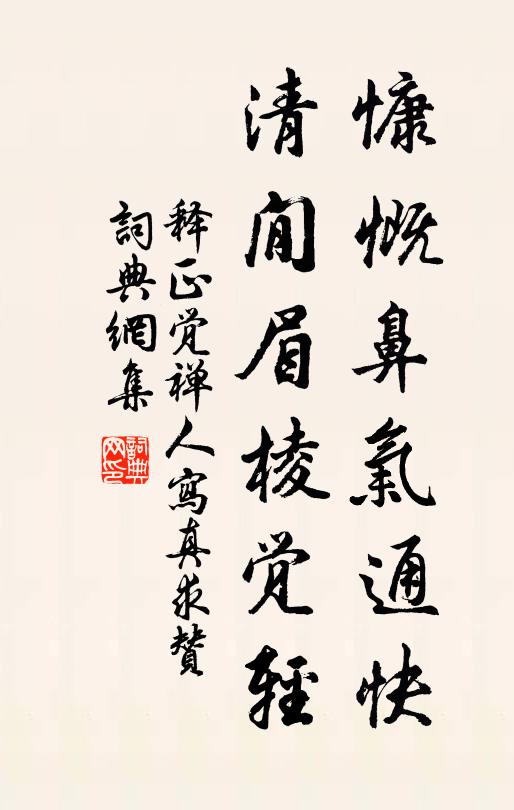 慷慨鼻氣通快
清閒眉棱觉輕
释正觉禅人寫真求贊
詞典網集
詞典网印